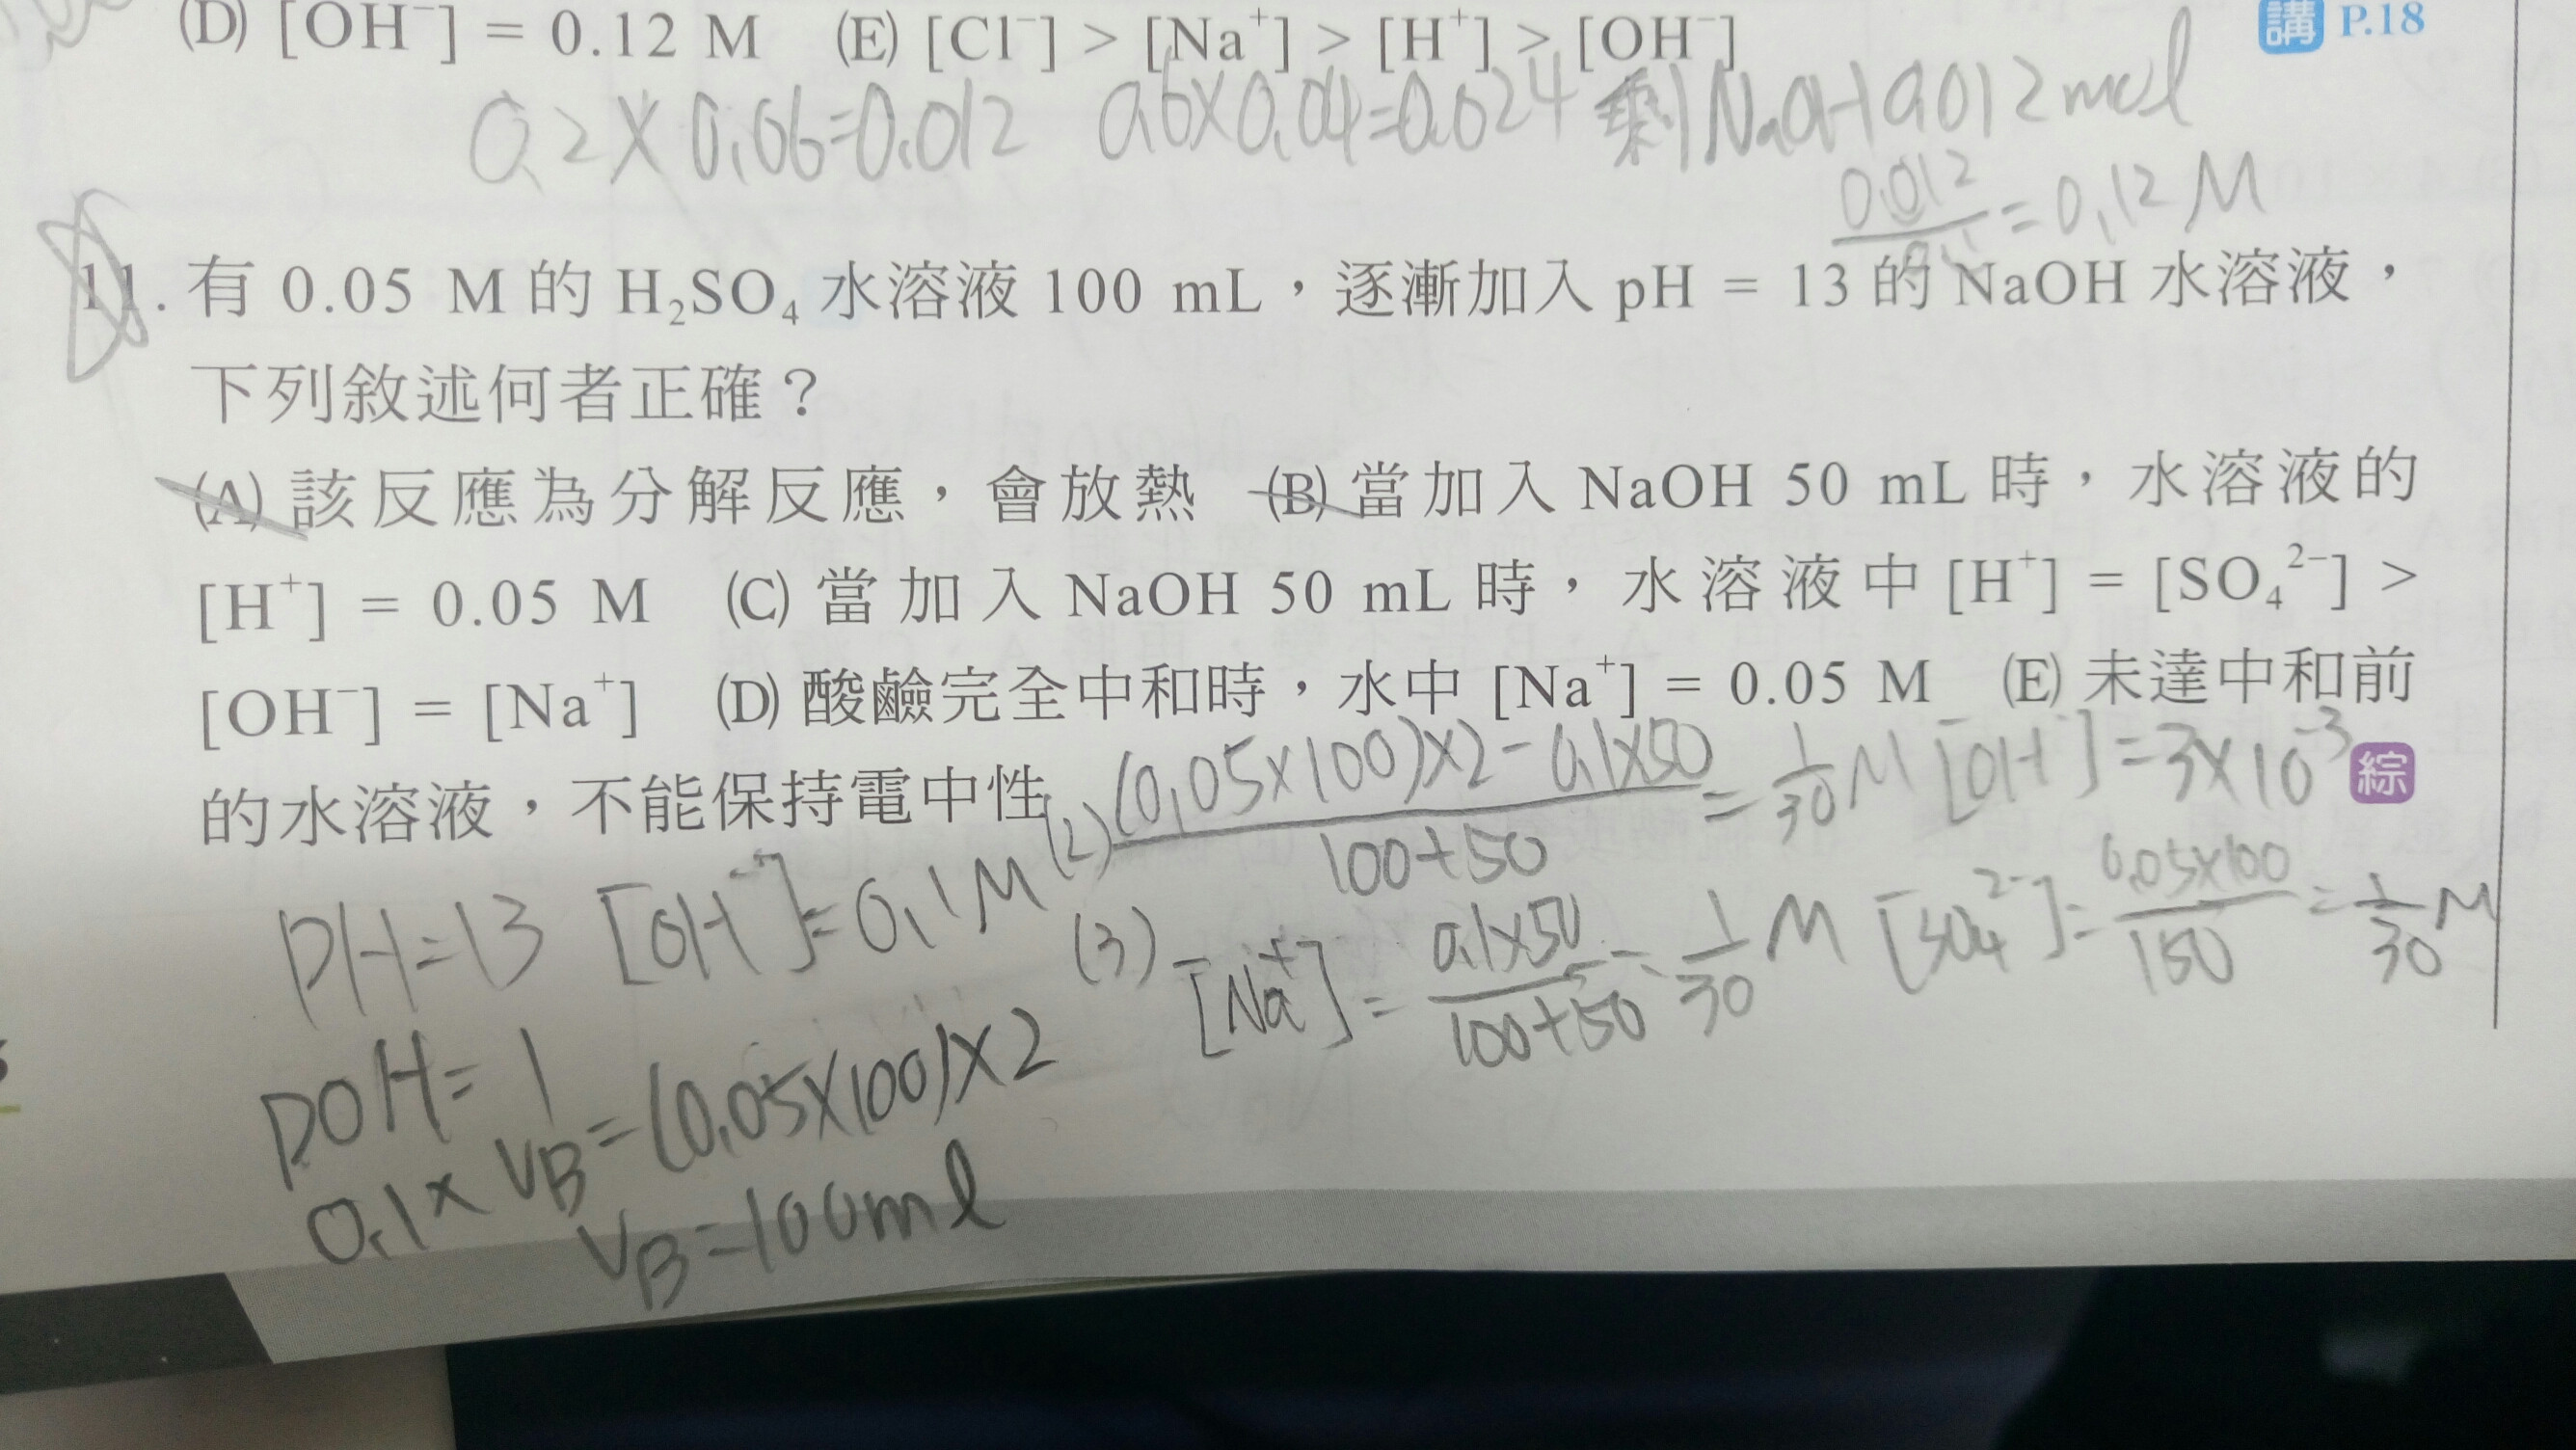 (D) [OH⁻] = 0.12 M (E) [Cl⁻] > [Na⁺] > [H⁺] > [OH⁻]
講 P.18
0.2×0.06=0.012 0.6×0.04=0.024 剩NaOH 0.012mol
0.012/0.1=0.12M
11. 有 0.05 M 的 H₂SO₄ 水溶液 100 mL,逐漸加入 pH = 13 的 NaOH 水溶液,
下列敘述何者正確?
(A) 該反應為分解反應,會放熱 (B) 當加入 NaOH 50 mL 時,水溶液的
[H⁺] = 0.05 M (C) 當加入 NaOH 50 mL 時,水溶液中 [H⁺] = [SO₄²⁻] >
[OH⁻] = [Na⁺] (D) 酸鹼完全中和時,水中 [Na⁺] = 0.05 M (E) 未達中和前
的水溶液,不能保持電中性
綜
(2) (0.05×100)×2-0.1×50/100+50=1/30M [OH⁻]=3×10⁻³
PH=13 [OH⁻]=0.1M
(3) [Na⁺]=0.1×50/100+50=1/30M [SO₄²⁻]=0.05×100/150=1/30M
POH=1
0.1×VB=(0.05×100)×2
VB=100ml